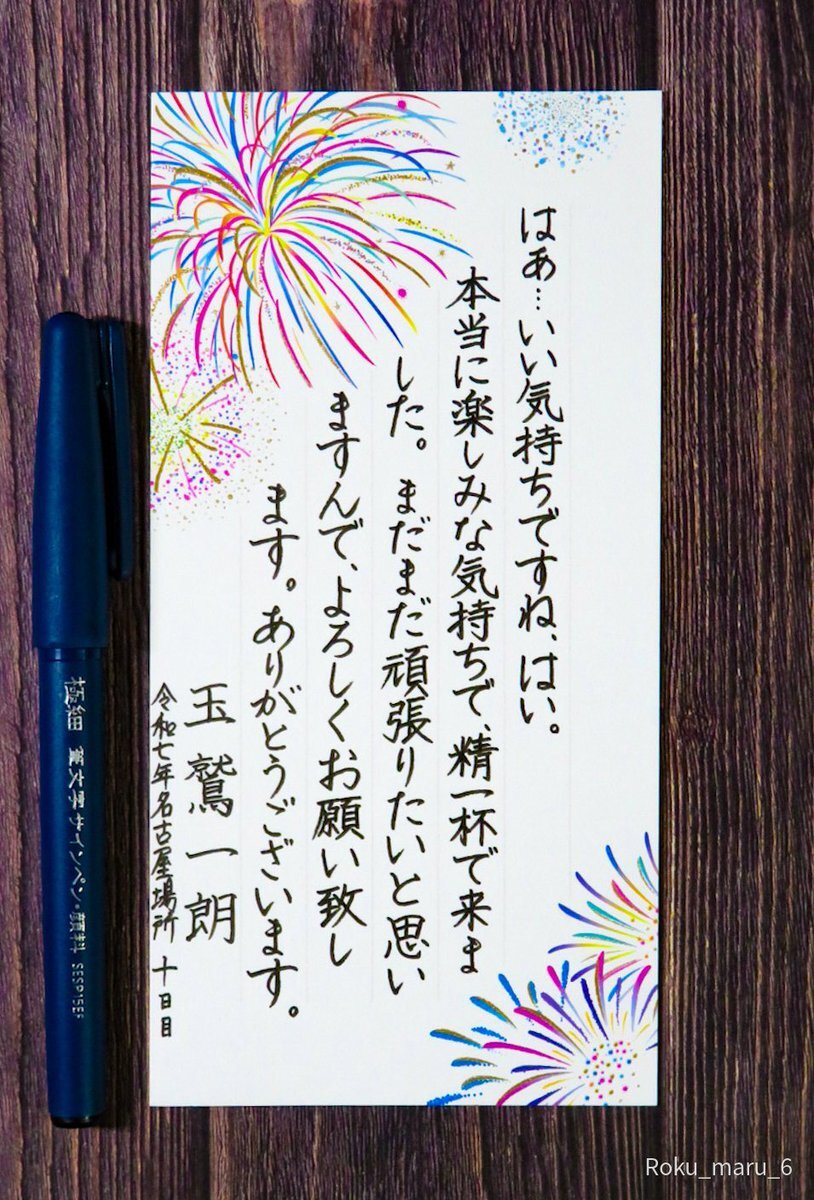 はあ…いい気持ちですね、はい。
本当に楽しみな気持ちで、精一杯で来ま
した。まだまだ頑張りたいと思い
ますんで、よろしくお願い致し
ます。ありがとうございます。
玉鷲一朗
令和七年名古屋場所 十日目
極細 筆文字サインペン・顔料 SESP15EF
Roku_maru_6